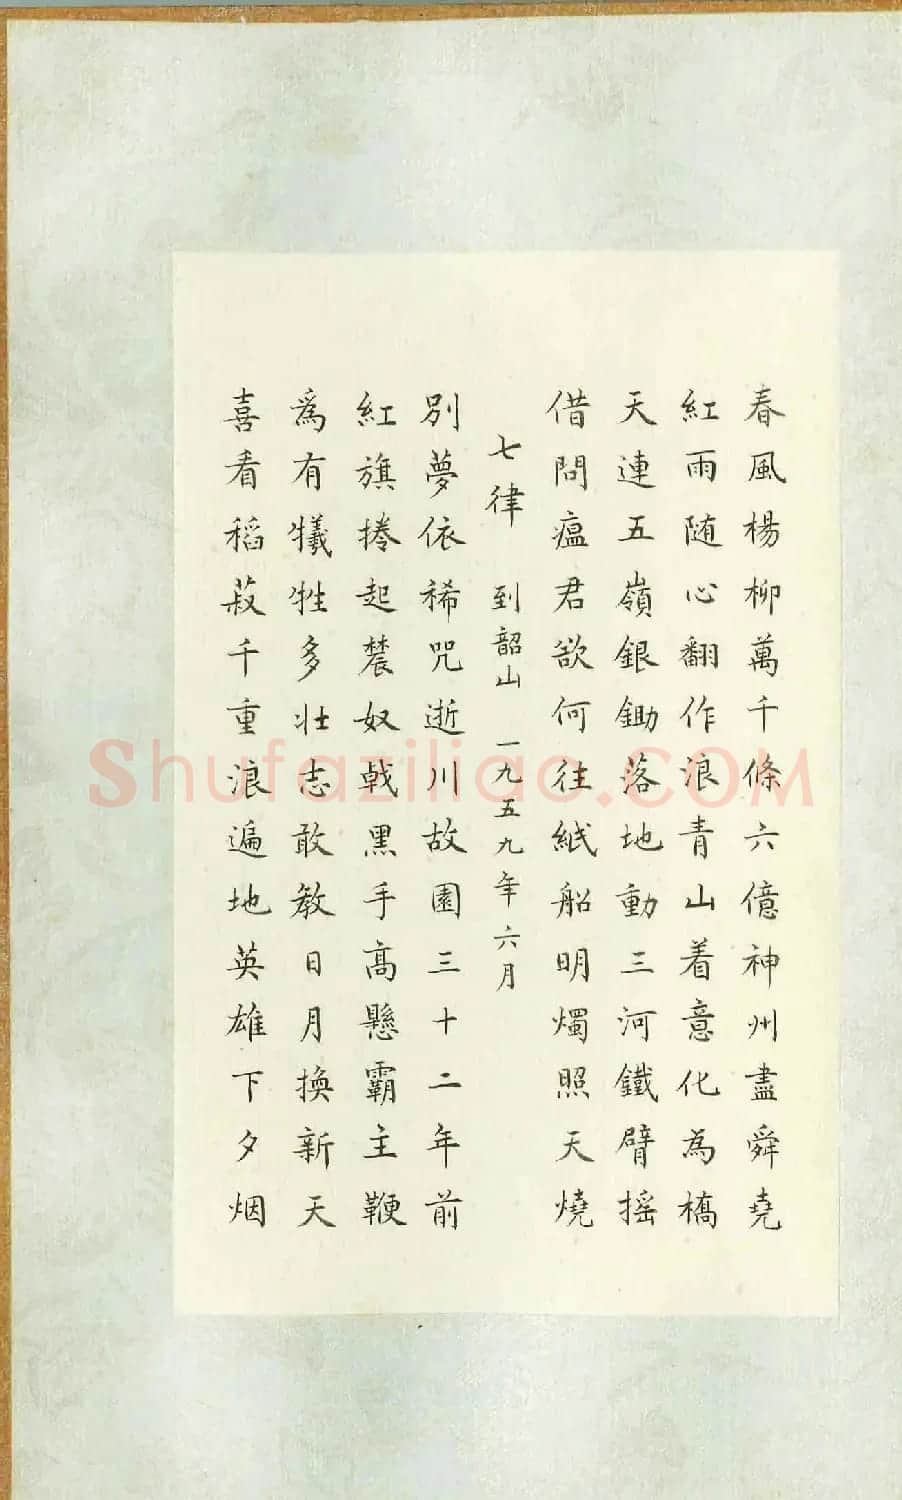 春風楊柳萬千條六億神州盡舜堯
紅雨随心翻作浪青山着意化為橋
天連五嶺銀鋤落地動三河鐵臂摇
借問瘟君欲何往紙船明燭照天燒
七律 到韶山 一九五九年六月
別夢依稀咒逝川故園三十二年前
紅旗捲起農奴戟黑手高懸霸主鞭
為有犧牲多壮志敢教日月換新天
喜看稻菽千重浪遍地英雄下夕烟
Shufaziliao.COM